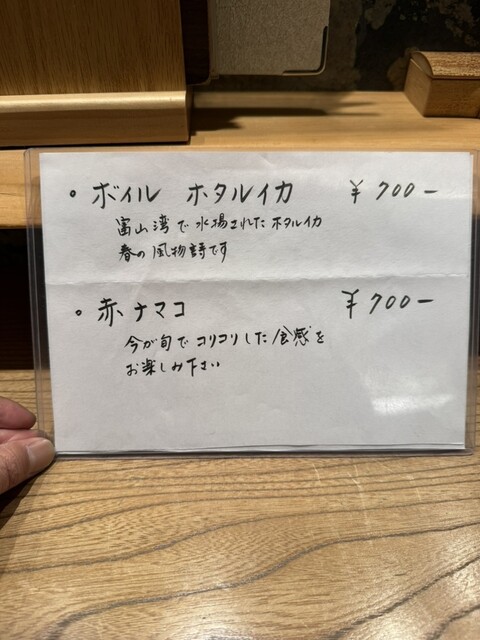 ・ボイル ホタルイカ ￥700−
富山湾で水揚されたホタルイカ
春の風物詩です
・赤ナマコ ￥700−
今が旬でコリコリした食感を
お楽しみ下さい